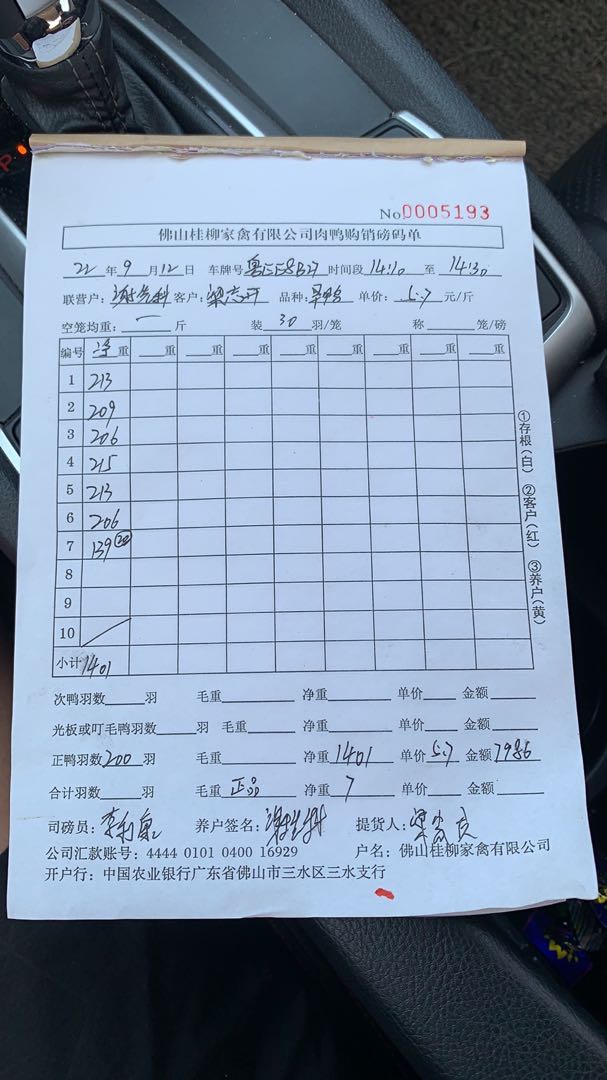 No.0005193
佛山桂柳家禽有限公司肉鸭购销磅码单
22 年 9 月 12 日 车牌号 时间段 14:10 至 14:30
联营户: 客户: 品种: 单价: 5.7 元/斤
空笼均重: 一 斤 装 30 羽/笼 称 笼/磅
编号 净重 重 重 重 重 重 重 重 重
1 213
2 209
3 206
4 215
5 213
6 206
7 139 (20)
8
9
10
小计 1401
①存根(白) ②客户(红) ③养户(黄)
次鸭羽数 羽 毛重 净重 单价 金额
光板或叮毛鸭羽数 羽 毛重 净重 单价 金额
正鸭羽数 200 羽 毛重 净重 1401 单价 5.7 金额 7986
合计羽数 羽 毛重 正品 净重 7 单价 金额
司磅员: 养户签名: 提货人:
公司汇款账号: 4444 0101 0400 16929 户名: 佛山桂柳家禽有限公司
开户行: 中国农业银行广东省佛山市三水区三水支行